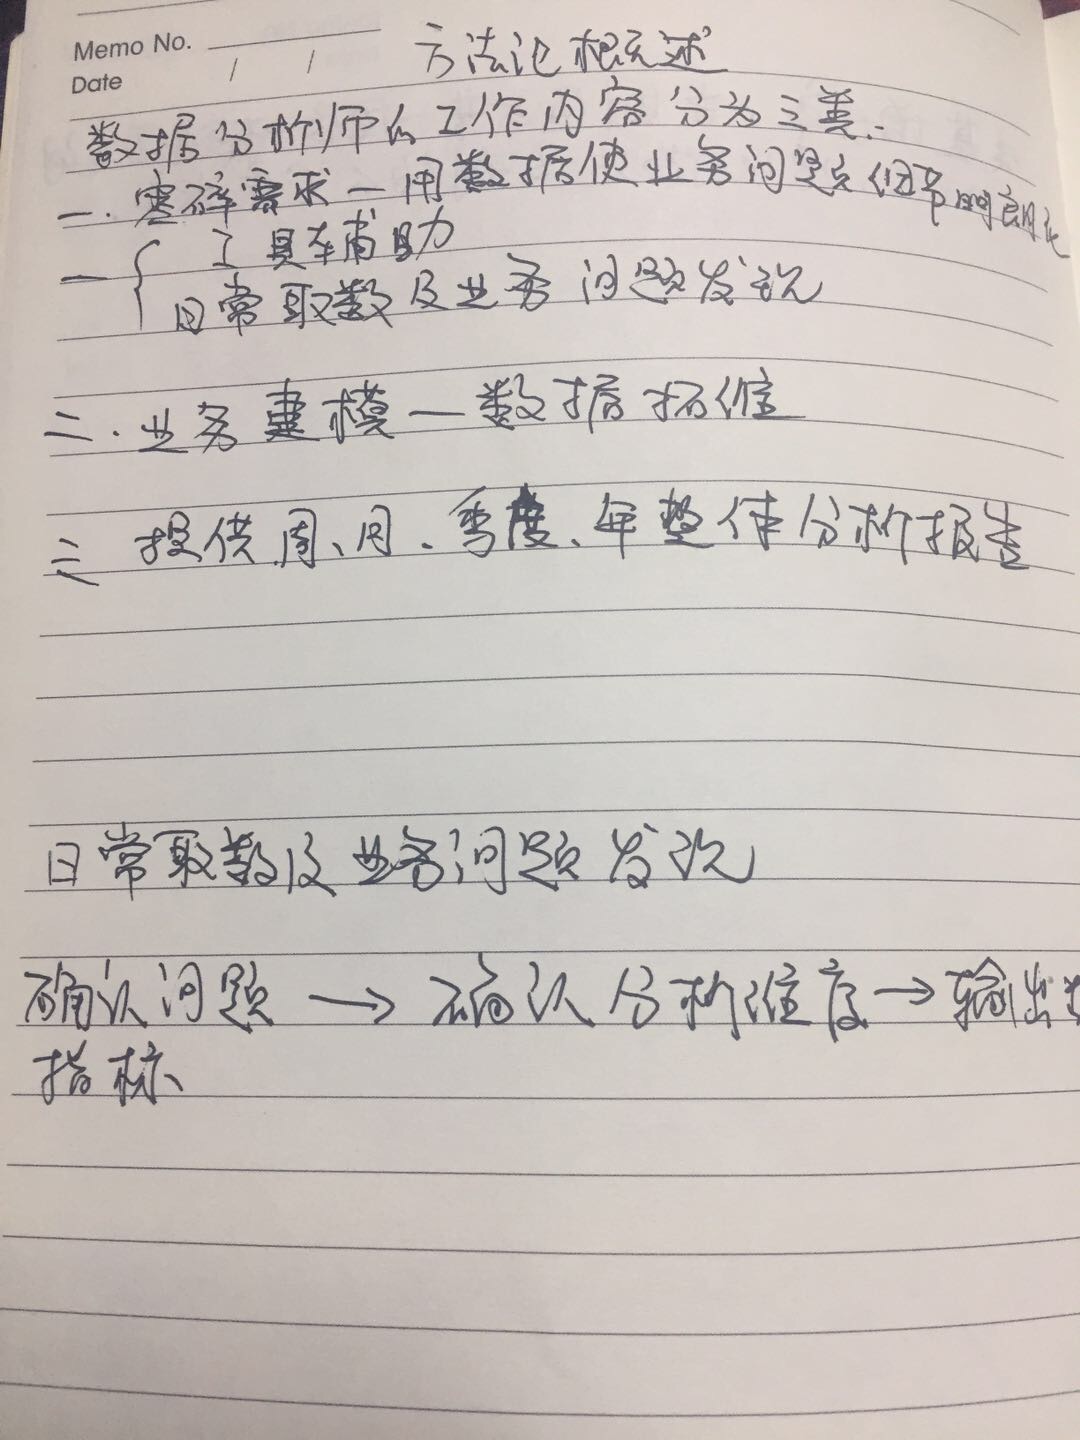 Memo No.
Date / /
方法论概述
数据分析师的工作内容分为三类.
一.零碎需求—用数据使业务问题细节明朗化
工具辅助
日常取数及业务问题发现
二.业务建模—数据拓维
三 提供周、月、季度、年整体分析报告
日常取数及业务问题发现
确认问题→确认分析维度→输出
指标